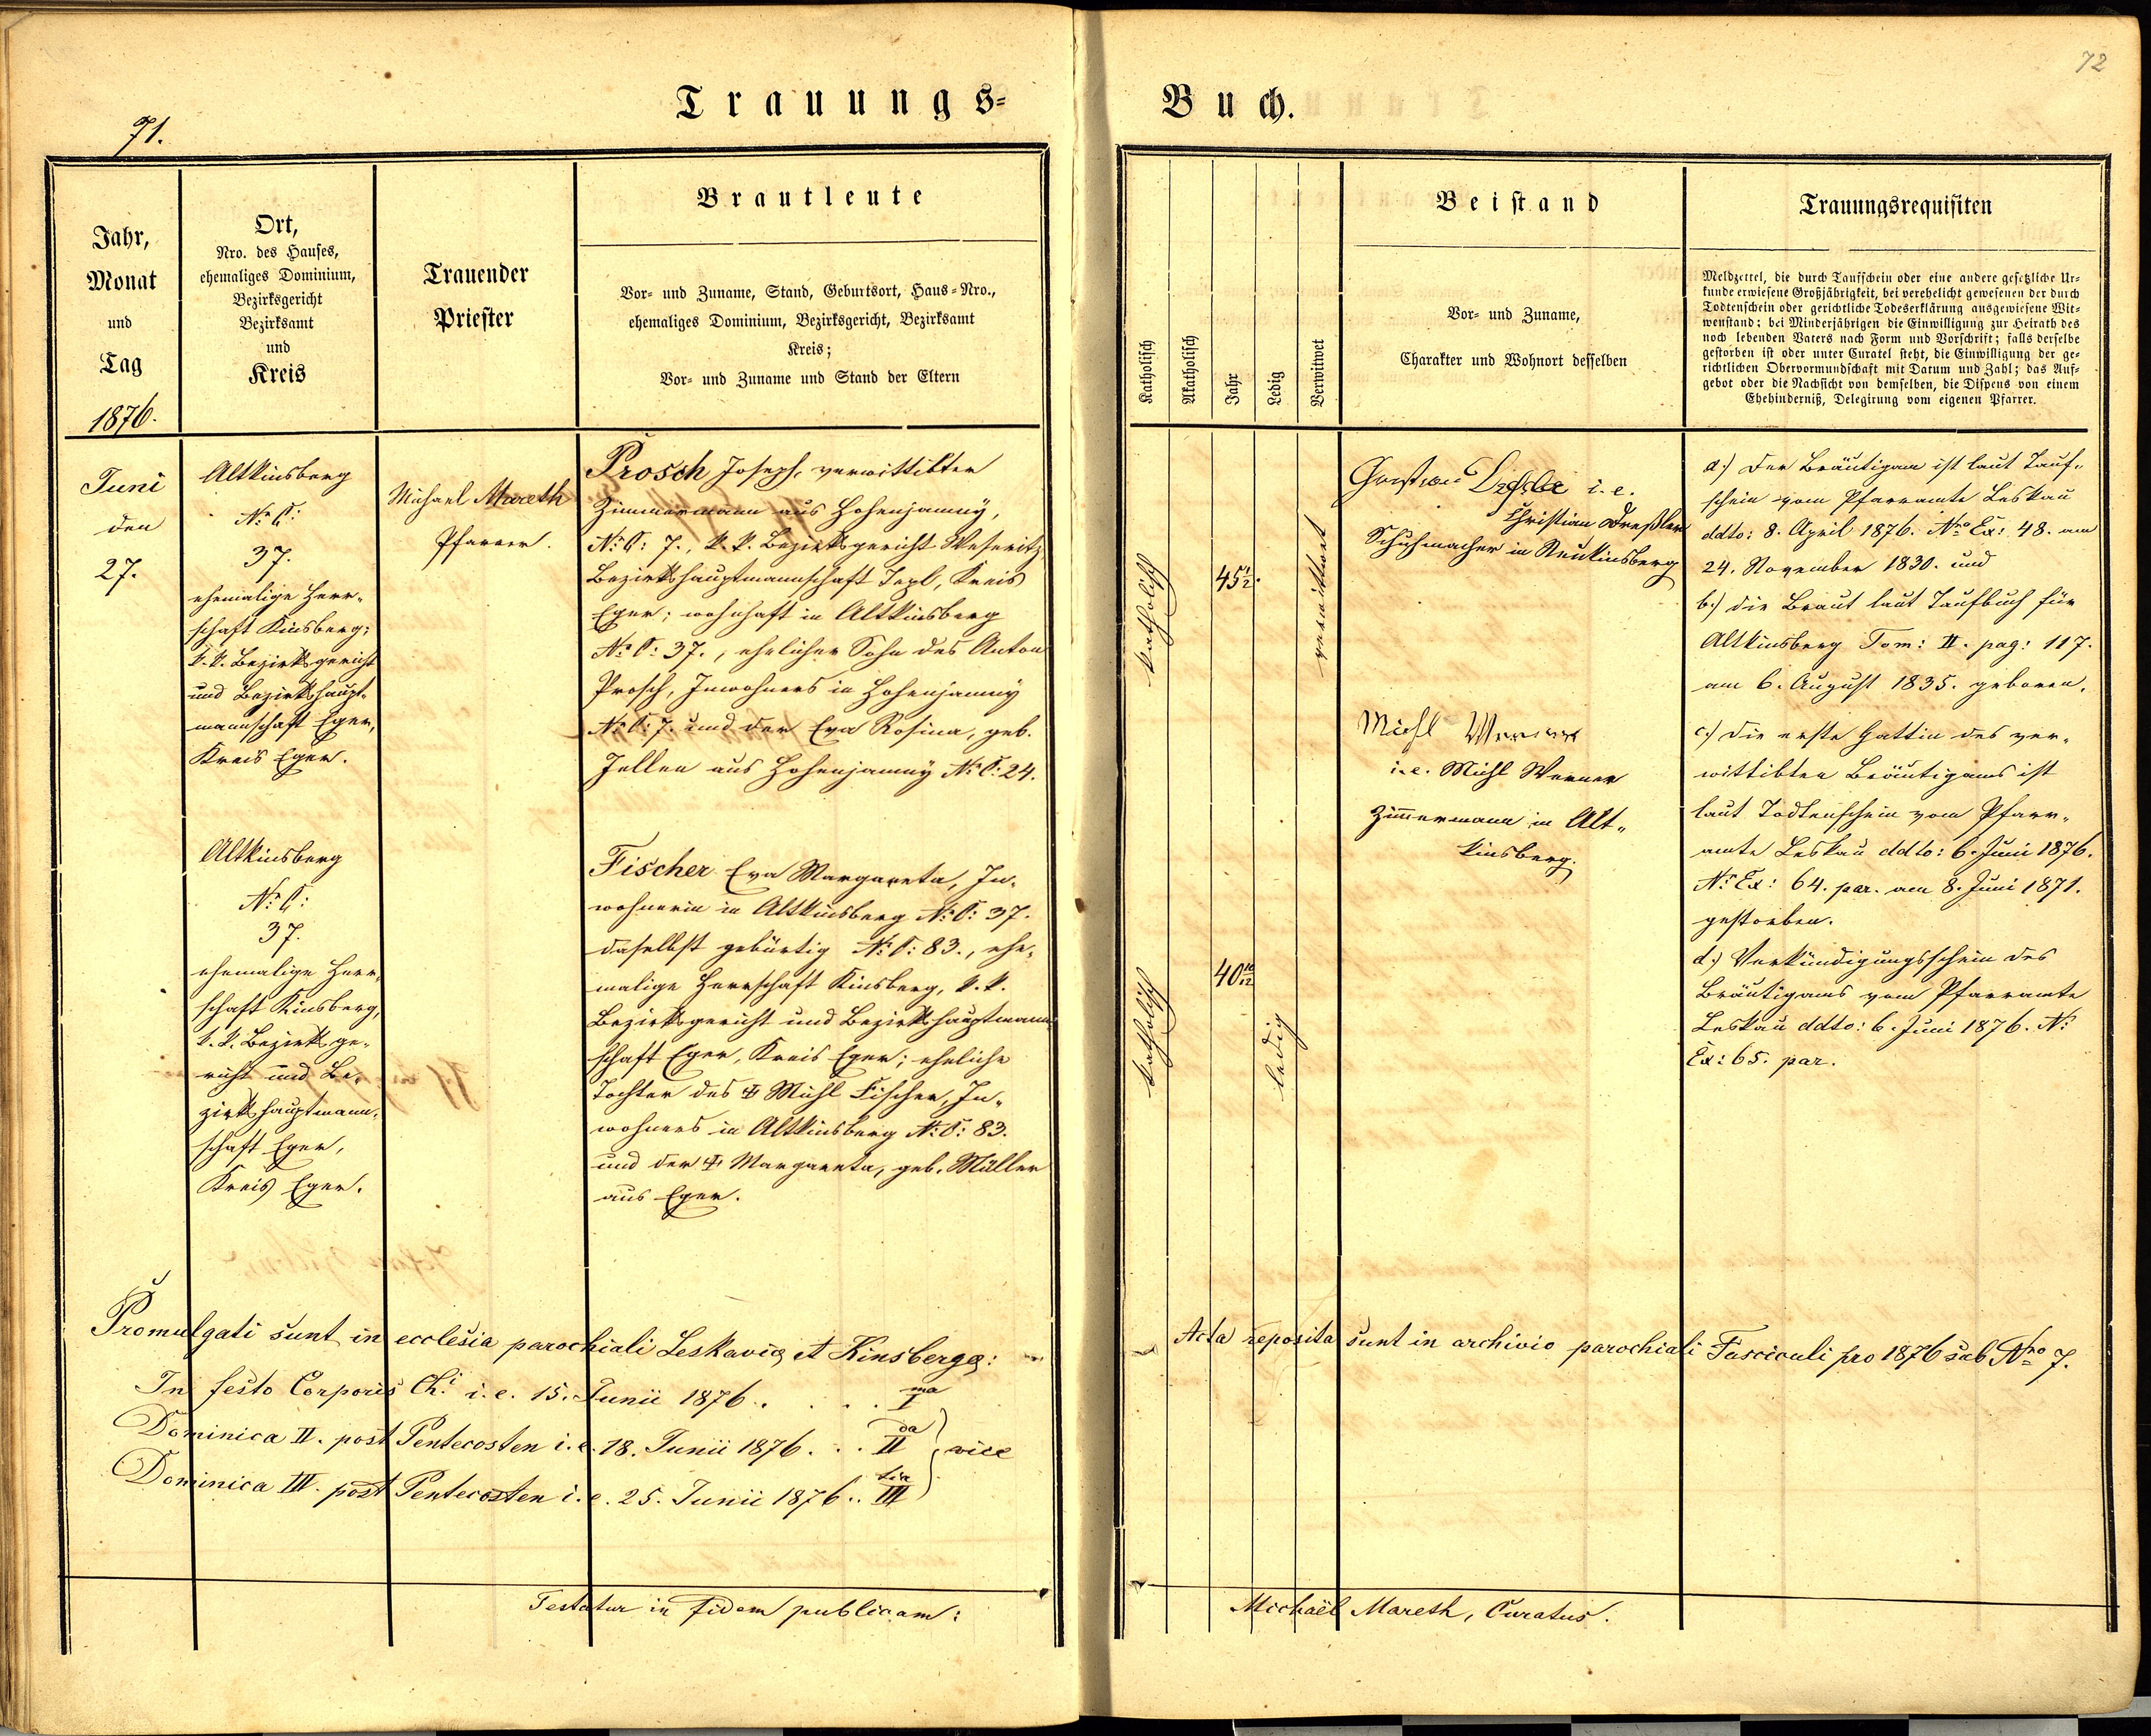 72
Trauungs-
Buch.
71.
Jahr,
Monat
und
Tag
1876.
Ort,
Nro. des Hauses,
ehemaliges Dominium,
Bezirksgericht
Bezirksamt
und
Kreis
Trauender
Priester
Brautleute
Vor- und Zuname, Stand, Geburtsort, Haus-Nro.,
ehemaliges Dominium, Bezirksgericht, Bezirksamt
Kreis;
Vor- und Zuname und Stand der Eltern
Juni
den
27.
Altkinsberg
No C:
37.
ehemalige Herr-
schaft Kinsberg;
k. k. Bezirksgericht
und Bezirkshaupt-
mannschaft Eger,
Kreis Eger.
Michael Mareth
Pfarrer.
Prosch Joseph, verwittibter
Zimmermann aus Hohenjamny,
No C: 7., k. k. Bezirksgericht Weseritz
Bezirkshauptmannschaft Tepl, Kreis
Eger; wohnhaft in Altkinsberg
No C: 37., ehelicher Sohn des Anton
Prosch, Inwohners in Hohenjamny
No C: 7. und der Eva Rosina, geb.
aus Hohenjamny No C: 24.
Altkinsberg
No C:
37.
ehemalige Herr-
schaft Kinsberg,
k. k. Bezirksge-
richt und Be-
zirkshauptmann-
schaft Eger,
Kreis Eger.
Fischer Eva Margareta, In-
wohnerin in Altkinsberg No C: 37.
daselbst gebürtig No C: 83., ehe-
malige Herrschaft Kinsberg, k. k.
Bezirksgericht und Bezirkshauptmann-
schaft Eger, Kreis Eger; eheliche
Tochter des ☩ Michl Fischer, In-
wohners in Altkinsberg No C: 83.
und der ☩ Margareta, geb. Müller
aus Eger.
Promulgati sunt in ecclesia parochiali Leskaviæ et Kinsbergæ:
In festo Corporis Chi i. e. 15. Junii 1876. . . . . I ma
Dominica II. post Pentecosten i. e. 18. Junii 1876. . . II da } vice
Dominica III. post Pentecosten i. e. 25. Junii 1876. . III tia
Testatur in fidem publicam:
Katholisch
Akatholisch
Jahr
Ledig
Verwitwet
Beistand
Vor- und Zuname,
Charakter und Wohnort desselben
Trauungsrequisiten
Meldzettel, die durch Taufschein oder eine andere gesetzliche Ur-
kunde erwiesene Großjährigkeit, bei verehelicht gewesenen der durch
Todtenschein oder gerichtliche Todeserklärung ausgewiesene Wit-
wenstand; bei Minderjährigen die Einwilligung zur Heirath des
noch lebenden Vaters nach Form und Vorschrift; falls derselbe
gestorben ist oder unter Curatel steht, die Einwilligung der ge-
richtlichen Obervormundschaft mit Datum und Zahl; das Auf-
gebot oder die Nachsicht von demselben, die Dispens von einem
Ehehinderniß, Delegirung vom eigenen Pfarrer.
katholisch
45 1/2.
verwittibt
i. e.
Christian Dreßler
Schuhmacher in Neukinsberg
Michl Werner
i. e. Michl Werner
Zimmermann in Alt-
kinsberg.
katholisch
40 10/12
ledig
a.) Der Bräutigam ist laut Tauf-
schein vom Pfarramte Leskau
ddto: 8. April 1876. Nro Ex: 48. am
24. November 1830. und
b.) die Braut laut Taufbuch für
Altkinsberg Tom: II. pag: 117.
am 6. August 1835. geboren.
c.) Die erste Gattin des ver-
wittibten Bräutigams ist
laut Todtenschein vom Pfarr-
amte Leskau ddto: 6. Juni 1876.
No Ex: 64. par. am 8. Juni 1871.
gestorben.
d.) Verkündigungsschein des
Bräutigams vom Pfarramte
Leskau ddto: 6. Juni 1876. No
Ex: 65. par.
Acta reposita sunt in archivio parochiali Fasciculi pro 1876 sub Nro 7.
Michaël Mareth, Curatus.